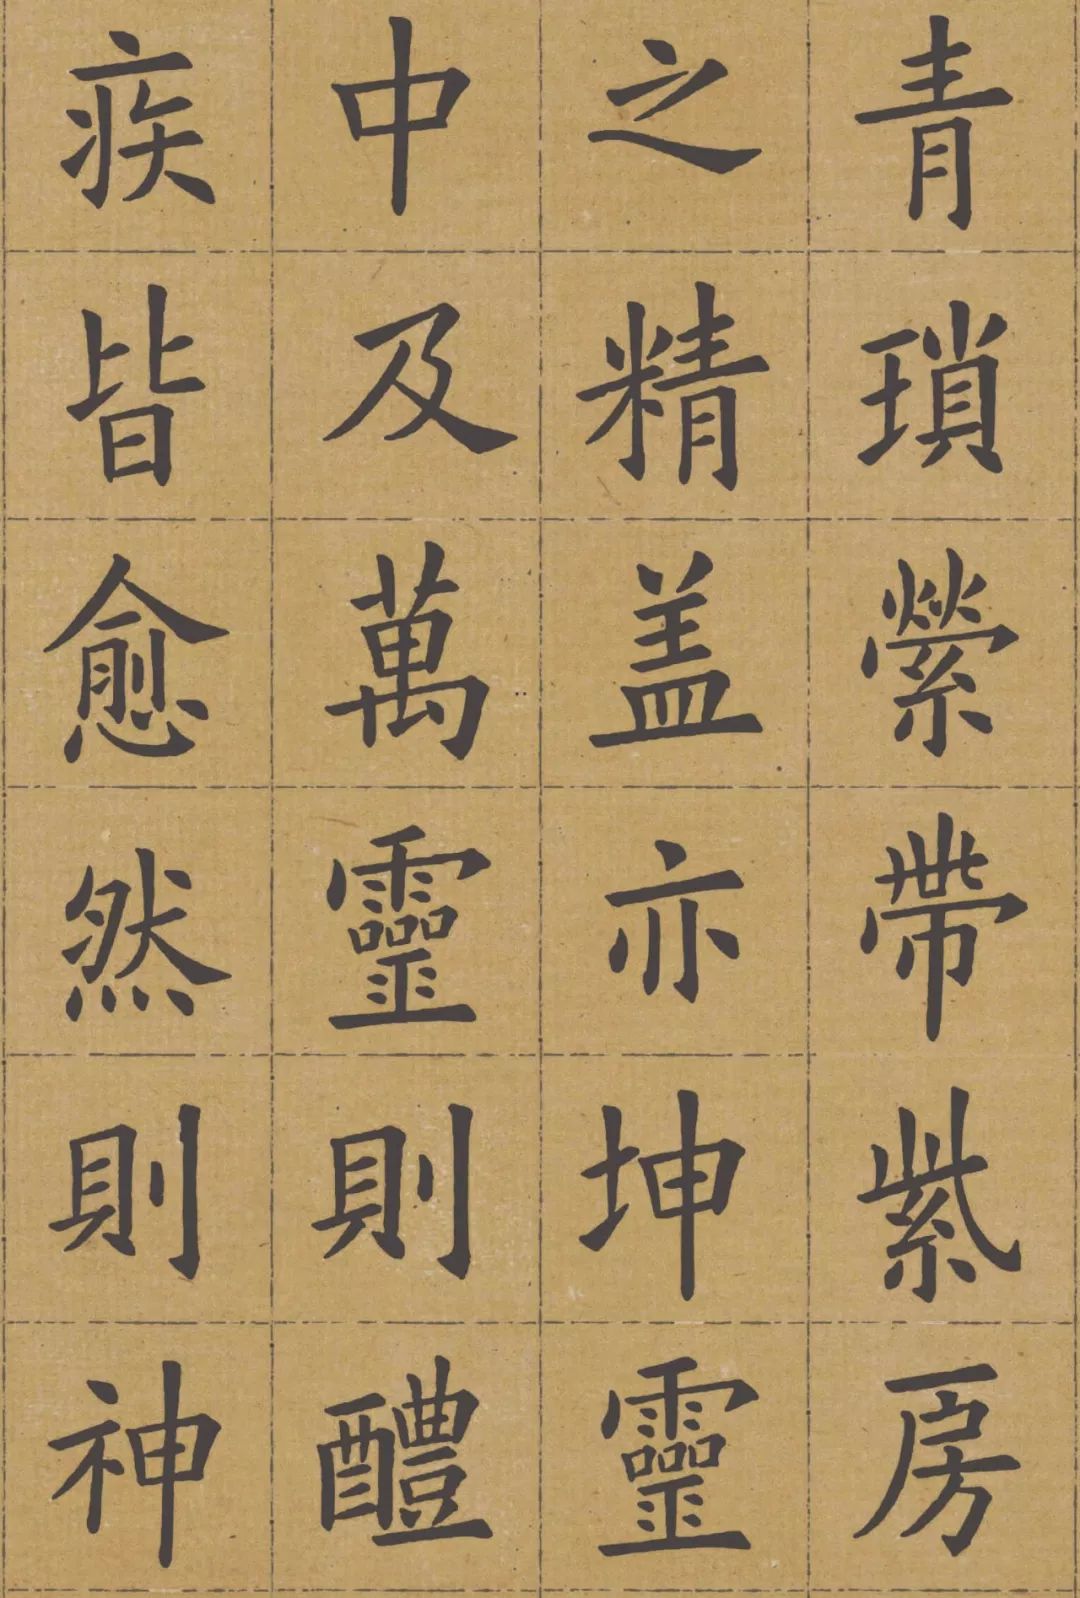 青瑣縈帶紫房
之精盖亦坤靈
中及萬靈則醴
疾皆愈然則神